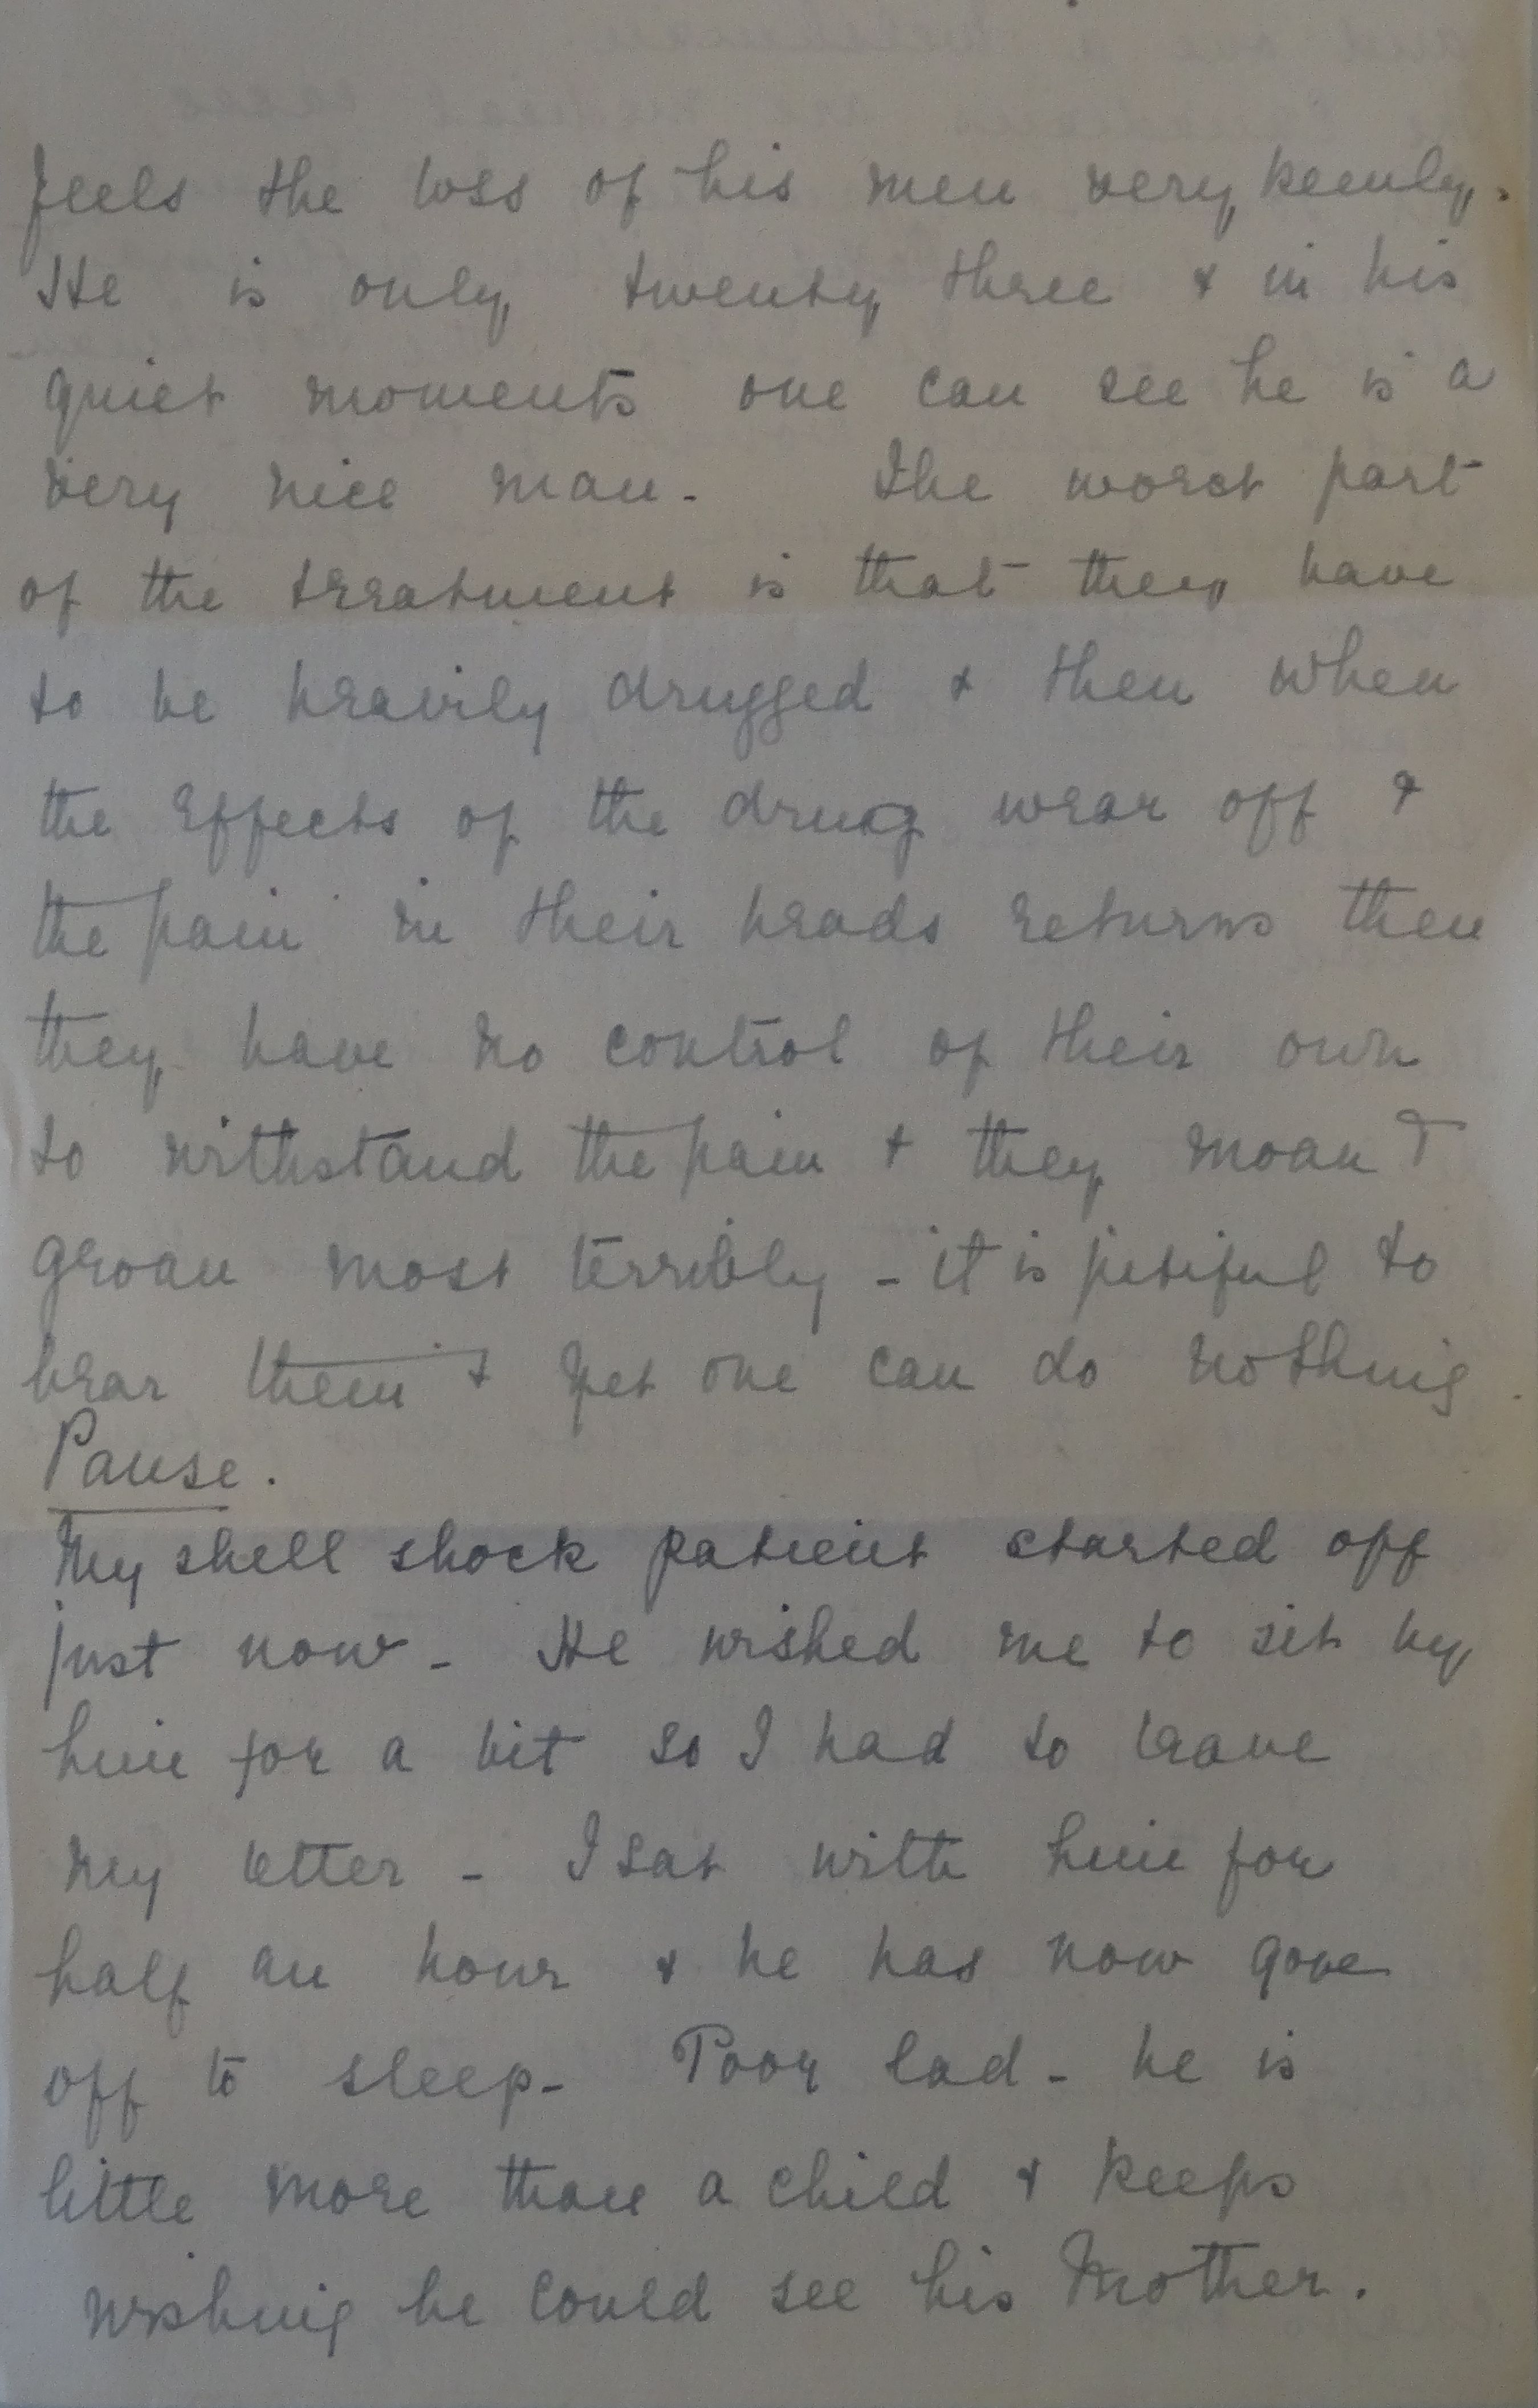 feels the loss of his men very keenly.
He is only twenty three & in his
quiet moments one can see he is a
very nice man - The worst part
of the treatment is that they have
to be heavily drugged & then when
the effects of the drug wear off &
the pain in their heads returns then
they have no control of their own
to withstand the pain & they moan &
groan most terribly - it is pitiful to
hear them & yet one can do nothing.
Pause.
My shell shock patient started off
just now - He wished me to sit by
him for a bit so I had to leave
my letter - I sat with him for
half an hour & he has now gone
off to sleep - Poor lad - he is
little more than a child & keeps
wishing he could see his Mother.